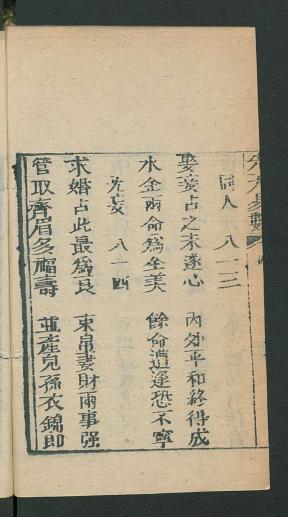 先天易數
同人 八一三
娶妾占之未遂心 內外平和終得成
水金兩命為全美 餘命遭逢恐不寧
无妄 八一四
求婚占此最為良 束帛妻財兩事强
管取齊眉多福壽 並產兒孫衣錦郎